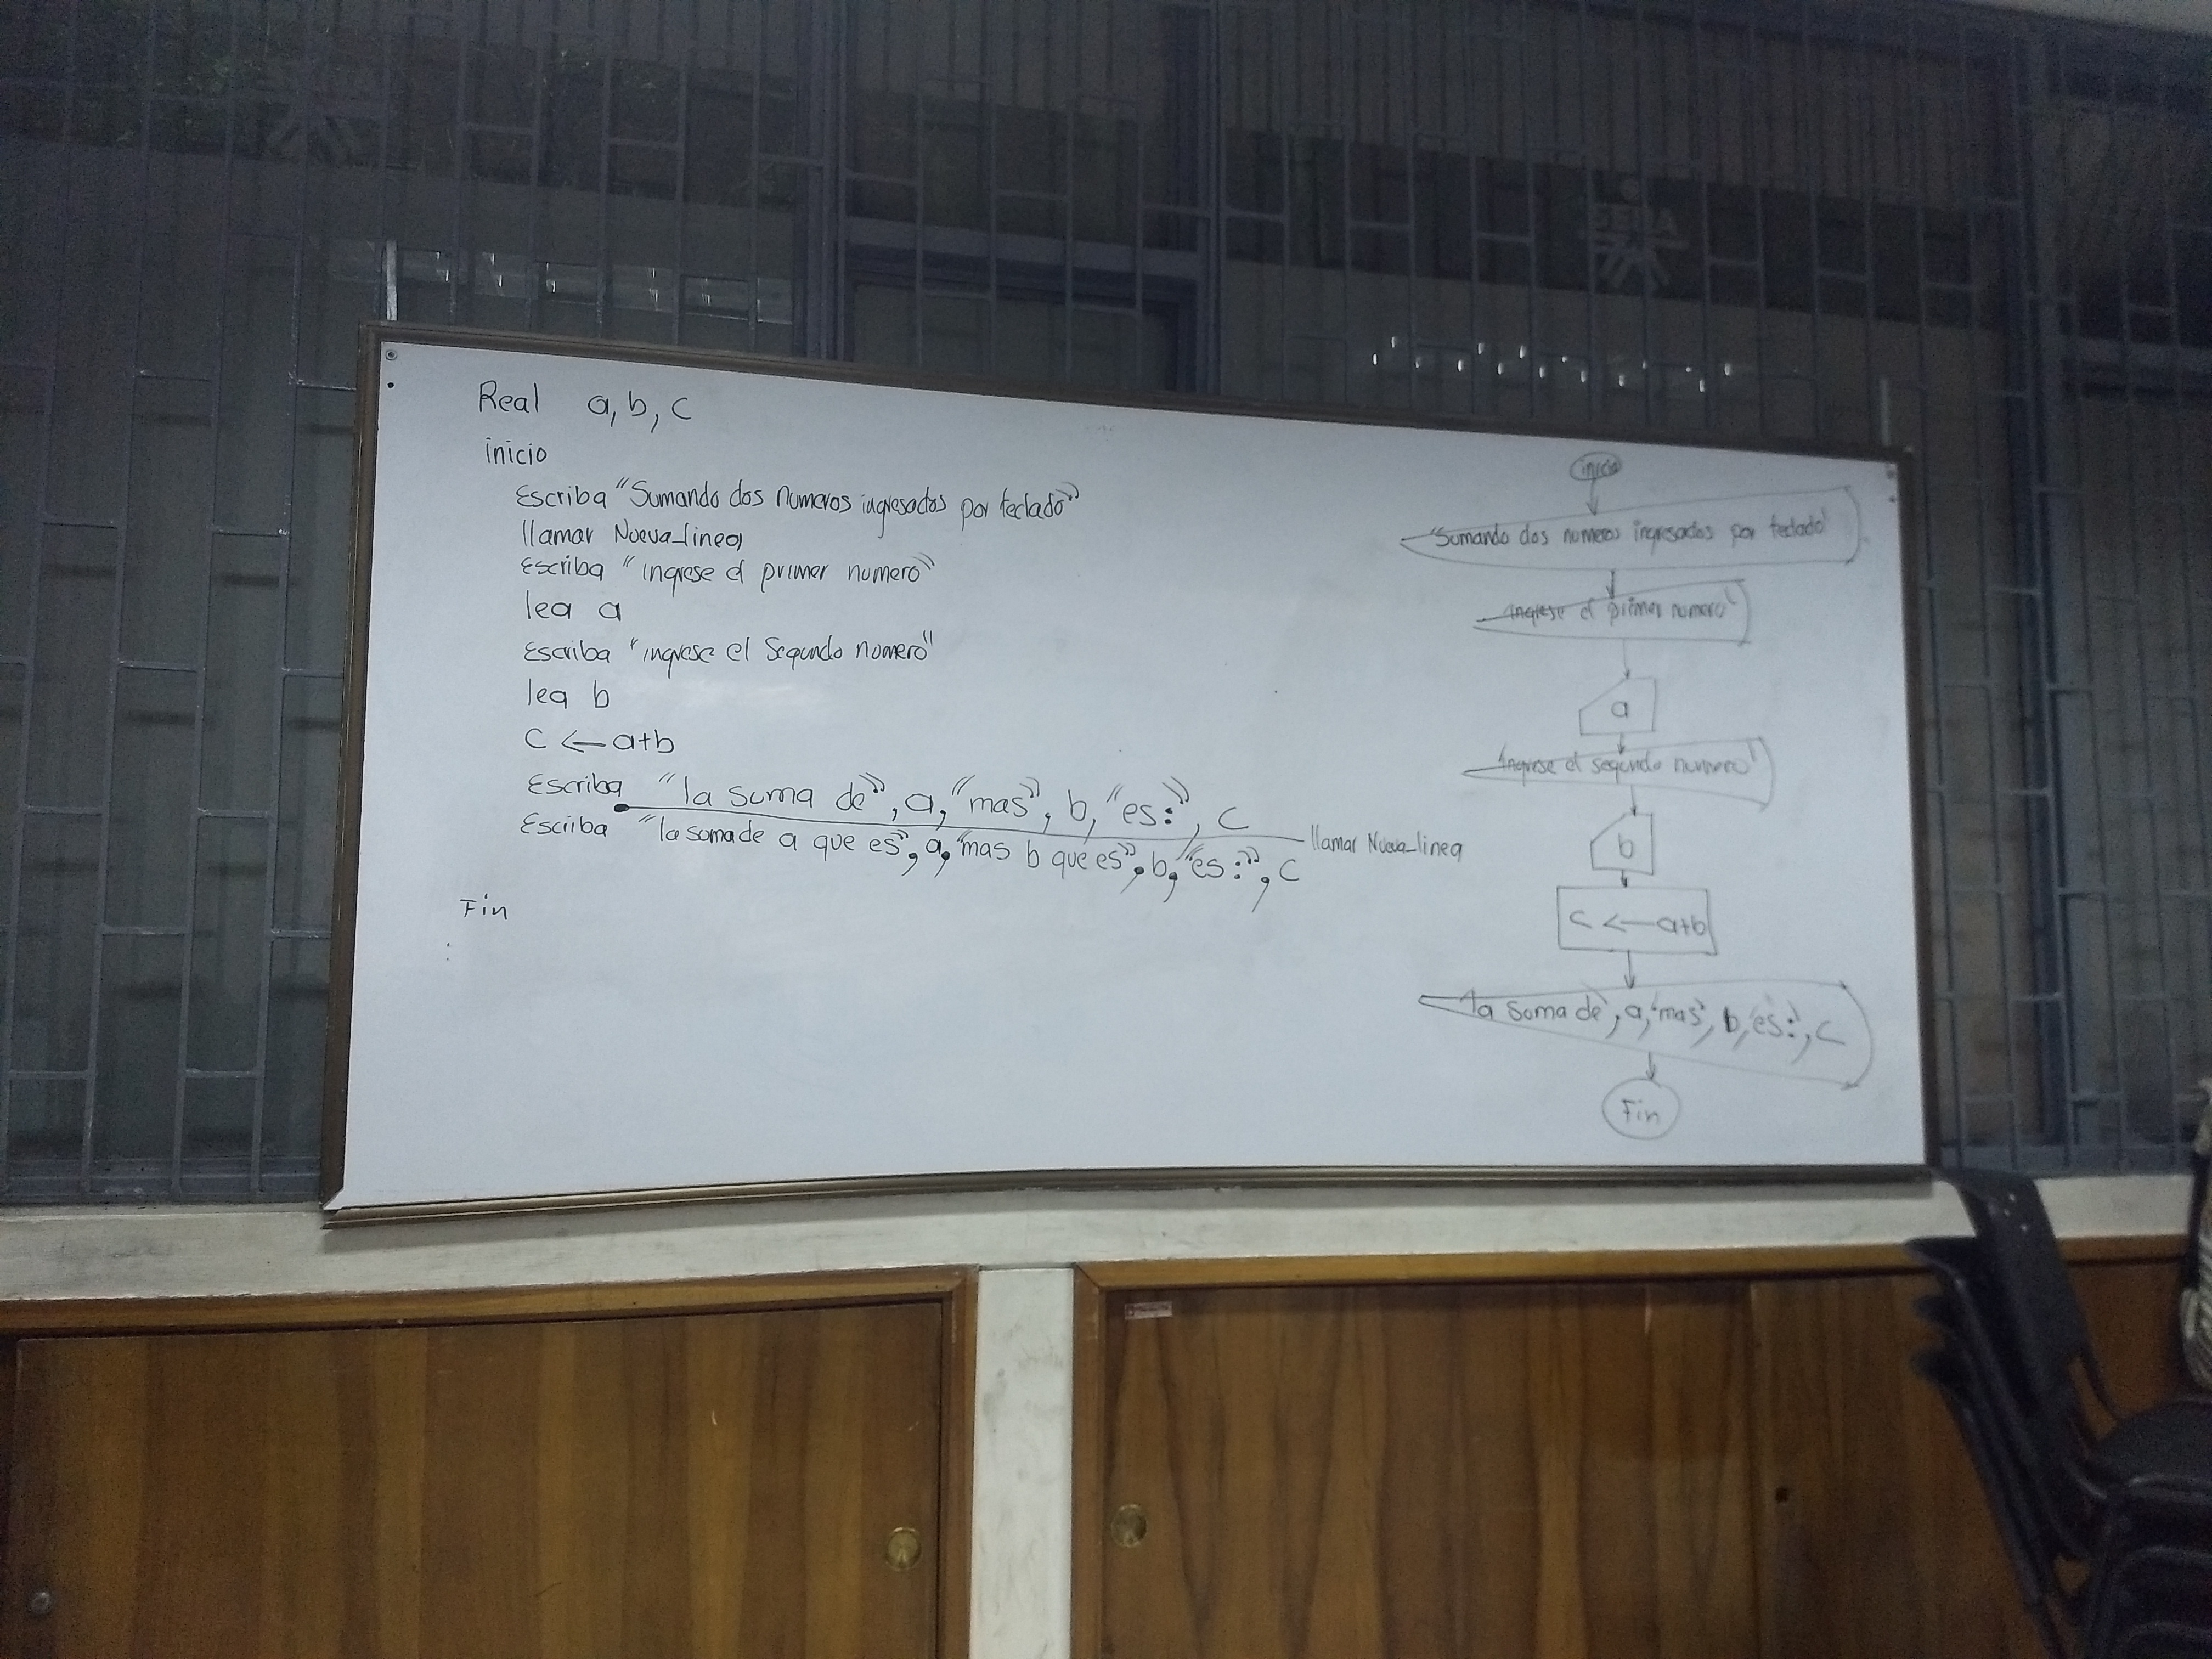 Real a, b, c
inicio
Escriba "Sumando dos numeros ingresados por teclado"
llamar Nueva_linea
Escriba "ingrese el primer numero"
lea a
Escriba "ingrese el Segundo numero"
lea b
C ← a+b
Escriba "la suma de", a, "mas", b, "es:", C
llamar Nueva_linea
Escriba "la suma de a que es", a, "mas b que es", b, "es:", C
Fin
inicio
"Sumando dos numeros ingresados por teclado"
"Ingrese el primer numero"
a
"Ingrese el segundo numero"
b
C ← a+b
"la suma de", a, "mas", b, "es:", C
Fin
SENA